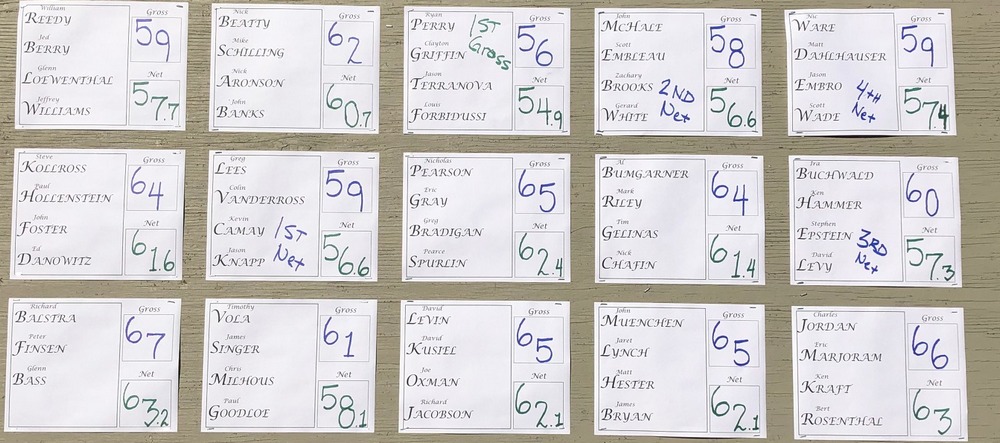 William
REEDY
Jed
BERRY
Glenn
LOEWENTHAL
Jeffrey
WILLIAMS
Gross
59
Net
57.7
Nick
BEATTY
Mike
SCHILLING
Nick
ARONSON
John
BANKS
Gross
62
Net
60.7
Ryan
PERRY
Clayton
GRIFFIN
Jason
TERRANOVA
Louis
FORBIDUSSI
1ST
Gross
Gross
56
Net
54.9
John
MCHALE
Scott
EMBLEAU
Zachary
BROOKS
Gerard
WHITE
2ND
Net
Gross
58
Net
56.6
Nic
WARE
Matt
DAHLHAUSER
Jason
EMBRO
Scott
WADE
4TH
Net
Gross
59
Net
57.4
Steve
KOLLROSS
Paul
HOLLENSTEIN
John
FOSTER
Ed
DANOWITZ
Gross
64
Net
61.6
Greg
LEES
Colin
VANDERROSS
Kevin
CAMAY
Jason
KNAPP
1ST
Net
Gross
59
Net
56.6
Nicholas
PEARSON
Eric
GRAY
Greg
BRADIGAN
Pearce
SPURLIN
Gross
65
Net
62.4
Al
BUMGARNER
Mark
RILEY
Tim
GELINAS
Nick
CHAFIN
Gross
64
Net
61.4
Ira
BUCHWALD
Ken
HAMMER
Stephen
EPSTEIN
David
LEVY
3RD
Net
Gross
60
Net
57.3
Richard
BALSTRA
Peter
FINSEN
Glenn
BASS
Gross
67
Net
63.2
Timothy
VOLA
James
SINGER
Chris
MILHOUS
Paul
GOODLOE
Gross
61
Net
58.1
David
LEVIN
David
KUSIEL
Joe
OXMAN
Richard
JACOBSON
Gross
65
Net
62.1
John
MUENCHEN
Jaret
LYNCH
Matt
HESTER
James
BRYAN
Gross
65
Net
62.1
Charles
JORDAN
Eric
MARJORAM
Ken
KRAFT
Bert
ROSENTHAL
Gross
66
Net
63